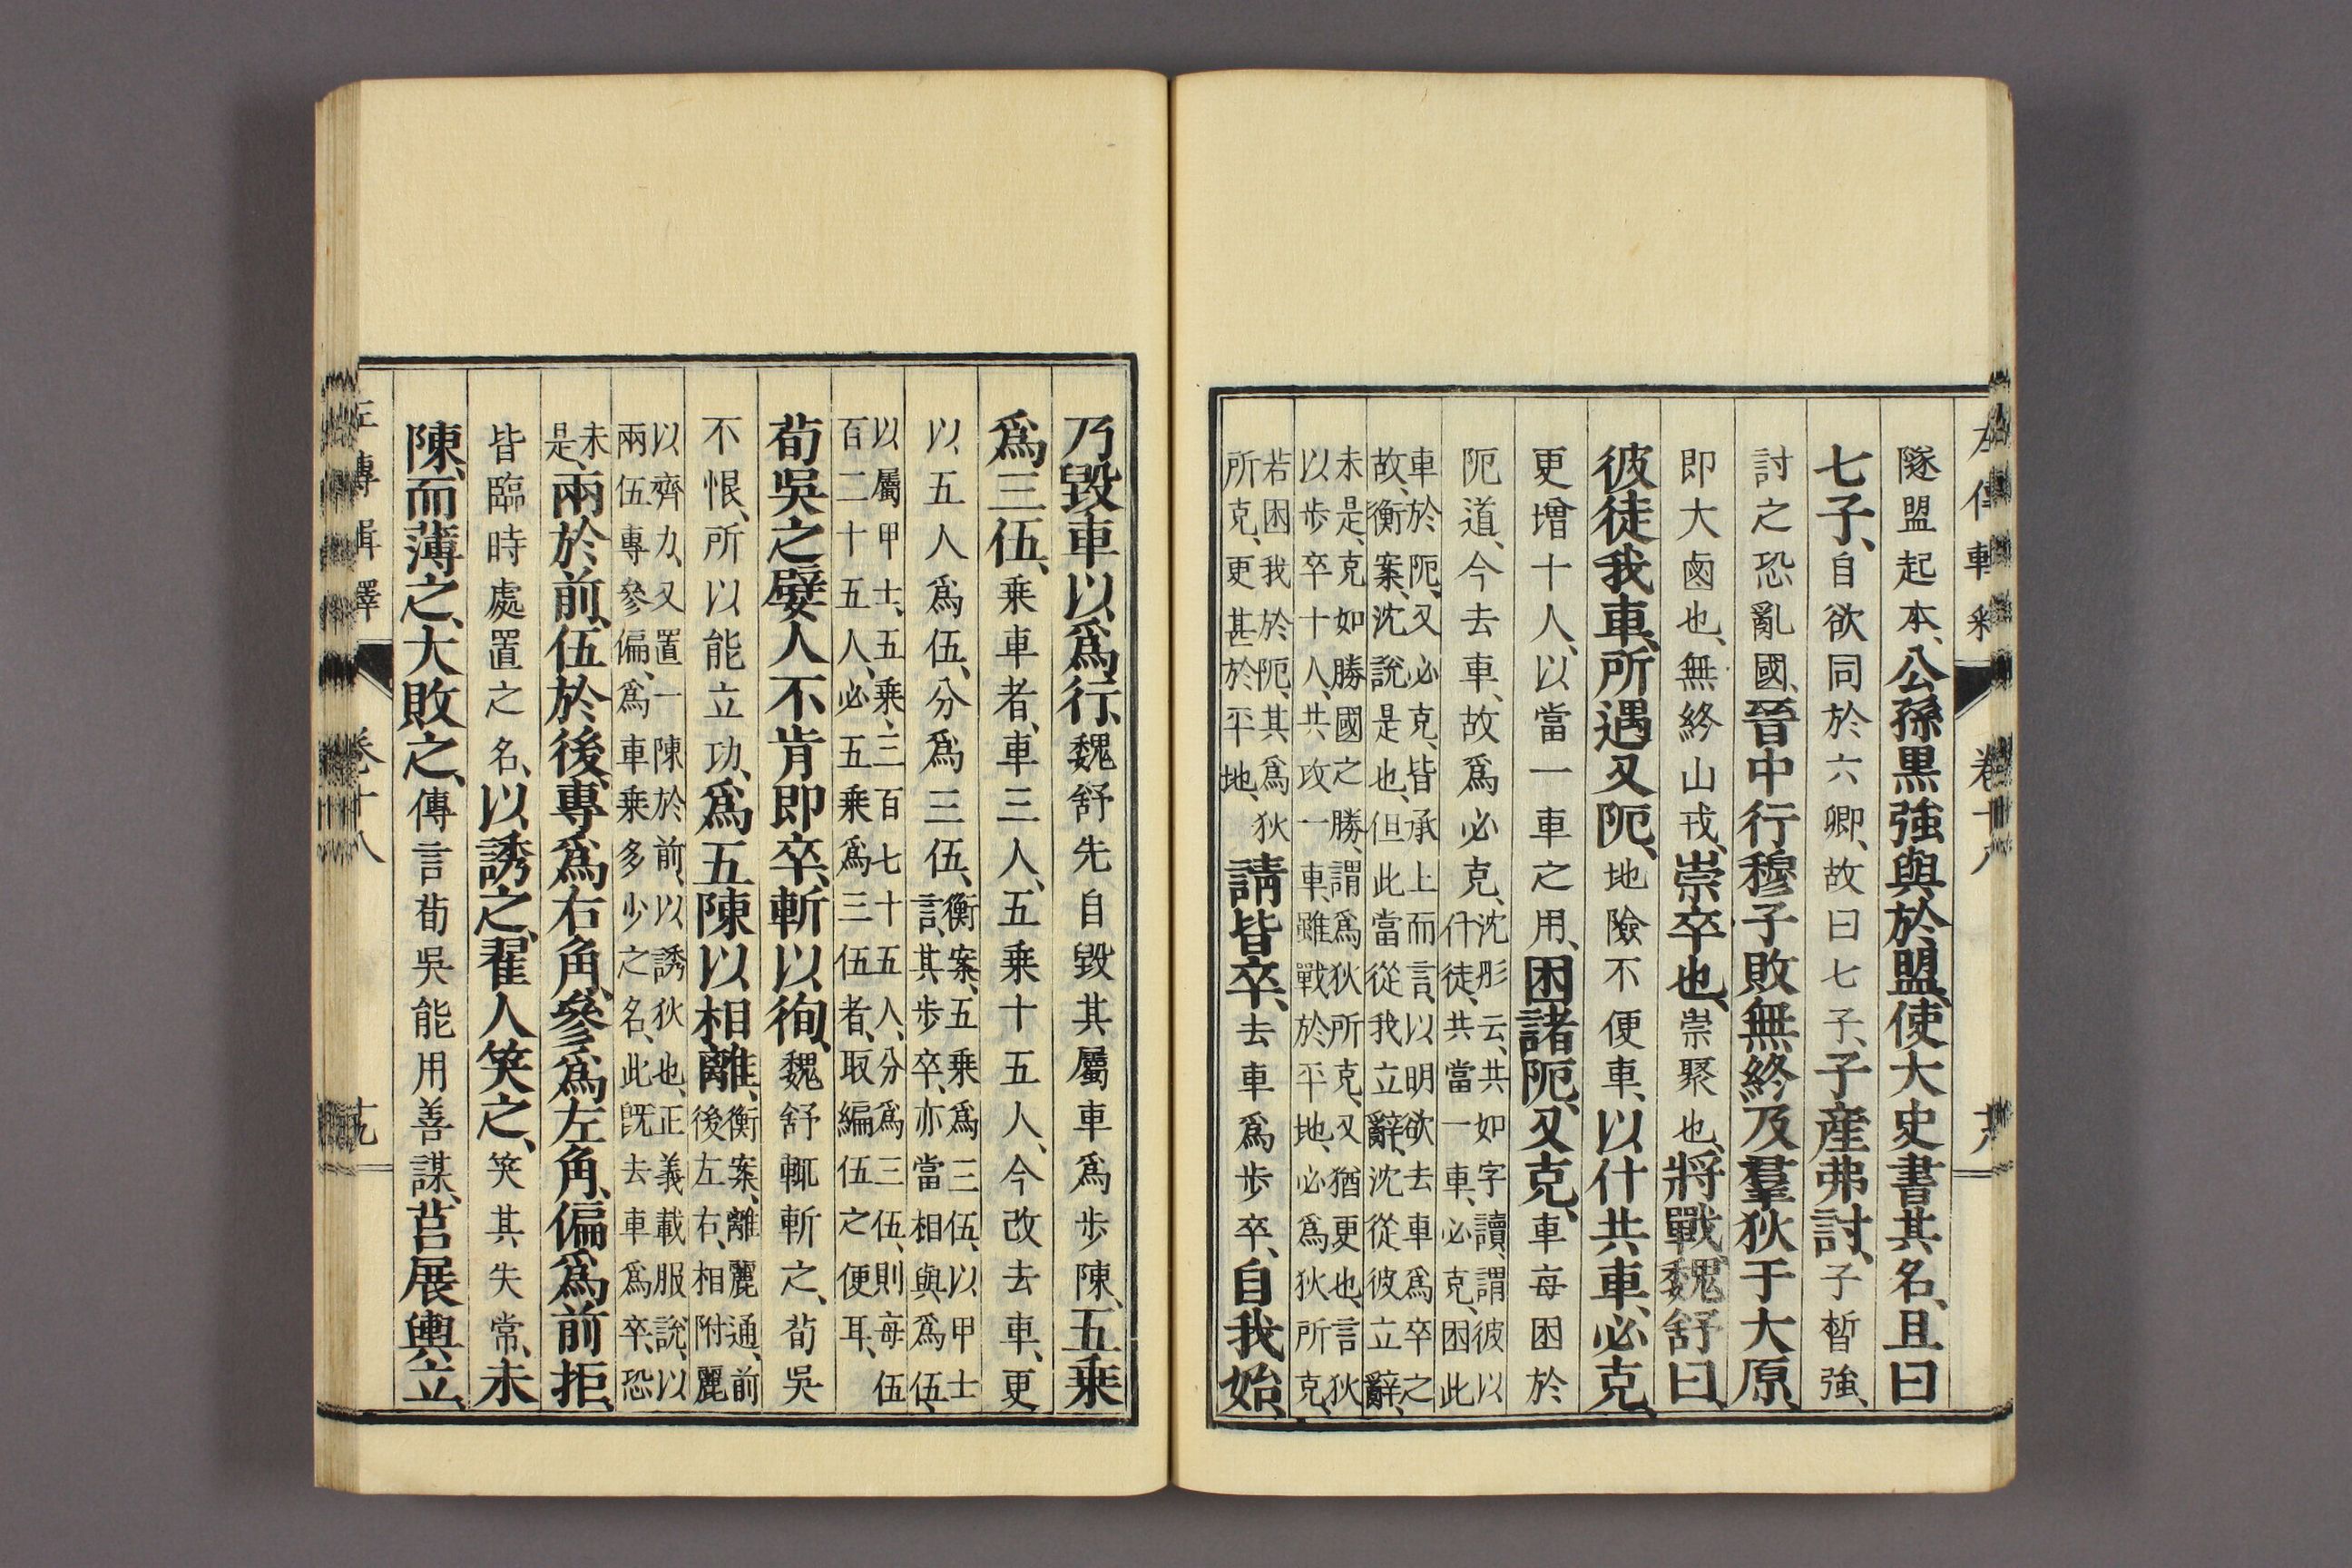 隧盟起本、公孫黒強與於盟、使大史書其名、且曰
七子、自欲同於六卿、故曰七子、子産弗討、子晳強、
討之恐亂國、晉中行穆子敗無終及羣狄于大原、
即大鹵也、無終山戎、崇卒也、崇聚也、將戰魏舒曰、
彼徒我車、所遇又阨、地險不便車、以什共車、必克、
更増十人、以當一車之用、困諸阨、又克、車毎困於
阨道、今去車、故爲必克、沈彤云、共如字讀、謂彼以
什徒、共當一車、必克、困此
車於阨、又必克、皆承上而言、以明欲去車爲卒之
故、衡案、沈說是也、但此當從我立辭、沈從彼立辭、
未是、克如勝國之勝、謂爲狄所克、又猶更也、言狄
以歩卒十人、共攻一車、雖戰於平地、必爲狄所克、
若困我於阨、其爲狄
所克、更甚於平地、請皆卒、去車爲歩卒、自我始、
左傳輯釋 卷十八
乃毀車以爲行、魏舒先自毀其屬車爲歩陳、五乘
爲三伍、乘車者、車三人、五乘十五人、今改去車、更
以五人爲伍、分爲三伍、衡案、五乘爲三伍、以甲士
言、其歩卒、亦當相與、爲伍、
以屬甲士、五乘、三百七十五人、分爲三伍、則毎伍
百二十五人、必五乘爲三伍者、取編伍之便耳、
荀吳之嬖人不肯即卒、斬以徇、魏舒輒斬之、荀吳
不恨、所以能立功、爲五陳以相離、衡案、離麗通、前
後左右、相附麗
以齊力、又置一陳於前、以誘狄也、正義載服說、以
兩伍專參偏、爲車乘多少之名、此既去車爲卒、恐
未
是、兩於前、伍於後、專爲右角、參爲左角、偏爲前拒、
皆臨時處置之名、以誘之、翟人笑之、笑其失常、未
陳、而薄之、大敗之、傳言荀吳能用善謀、莒展輿立、
左傳輯釋 卷十八 十九